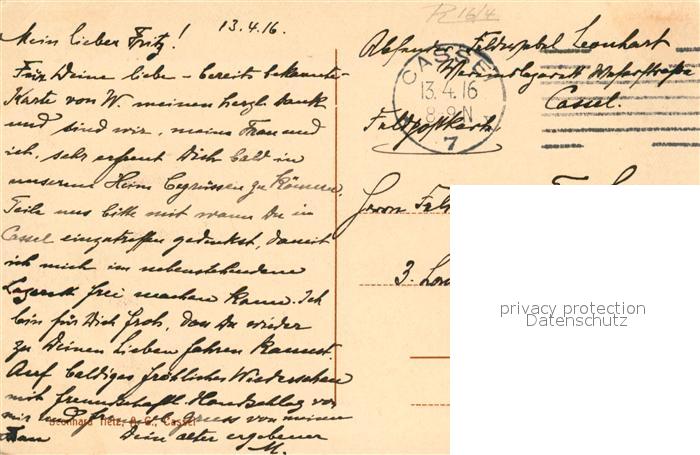 R 16/4
13.4.16.
Mein lieber Fritz!
Für Deine liebe - bereits bekannte -
Karte von W. meinen herzl. Dank
und sind wir, meine Frau und
ich, sehr erfreut Dich bald in
unserem Heim begrüssen zu können.
Teile uns bitte mit wann Du in
Cassel einzutreffen gedenkst, damit
ich mich im nebenstehendem
Lazarett frei machen kann. Ich
bin für Dich froh, dass Du wieder
zu Deinen Lieben fahren kannst.
Auf baldiges fröhliches Wiedersehen
mit freundschaftl. Handschlag von
mir und Gruss von meiner
Frau Dein alter ergebener
M.
Leonhard Tietz, A.-G., Cassel
Absender Feldwebel Leonhart
Cassel.
Feldpostkarte
CASSEL
13.4.16
8-9N
7
Herrn
3.
privacy protection
Datenschutz